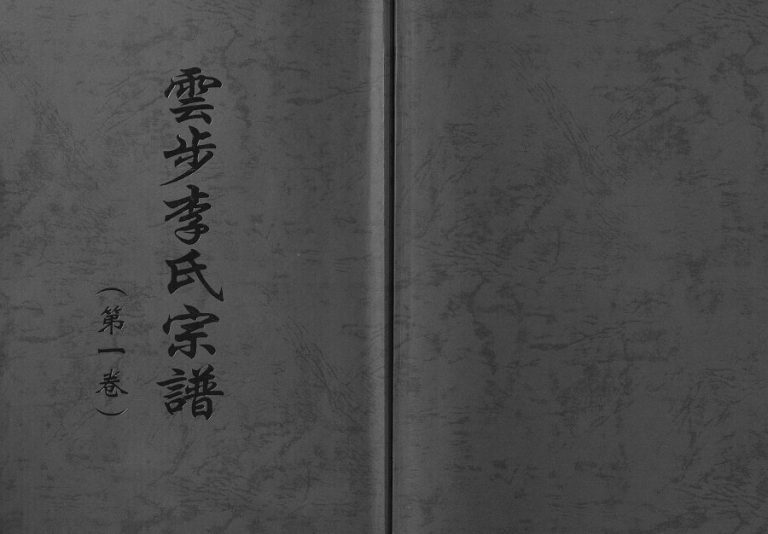 雲步李氏宗譜
（第一卷）